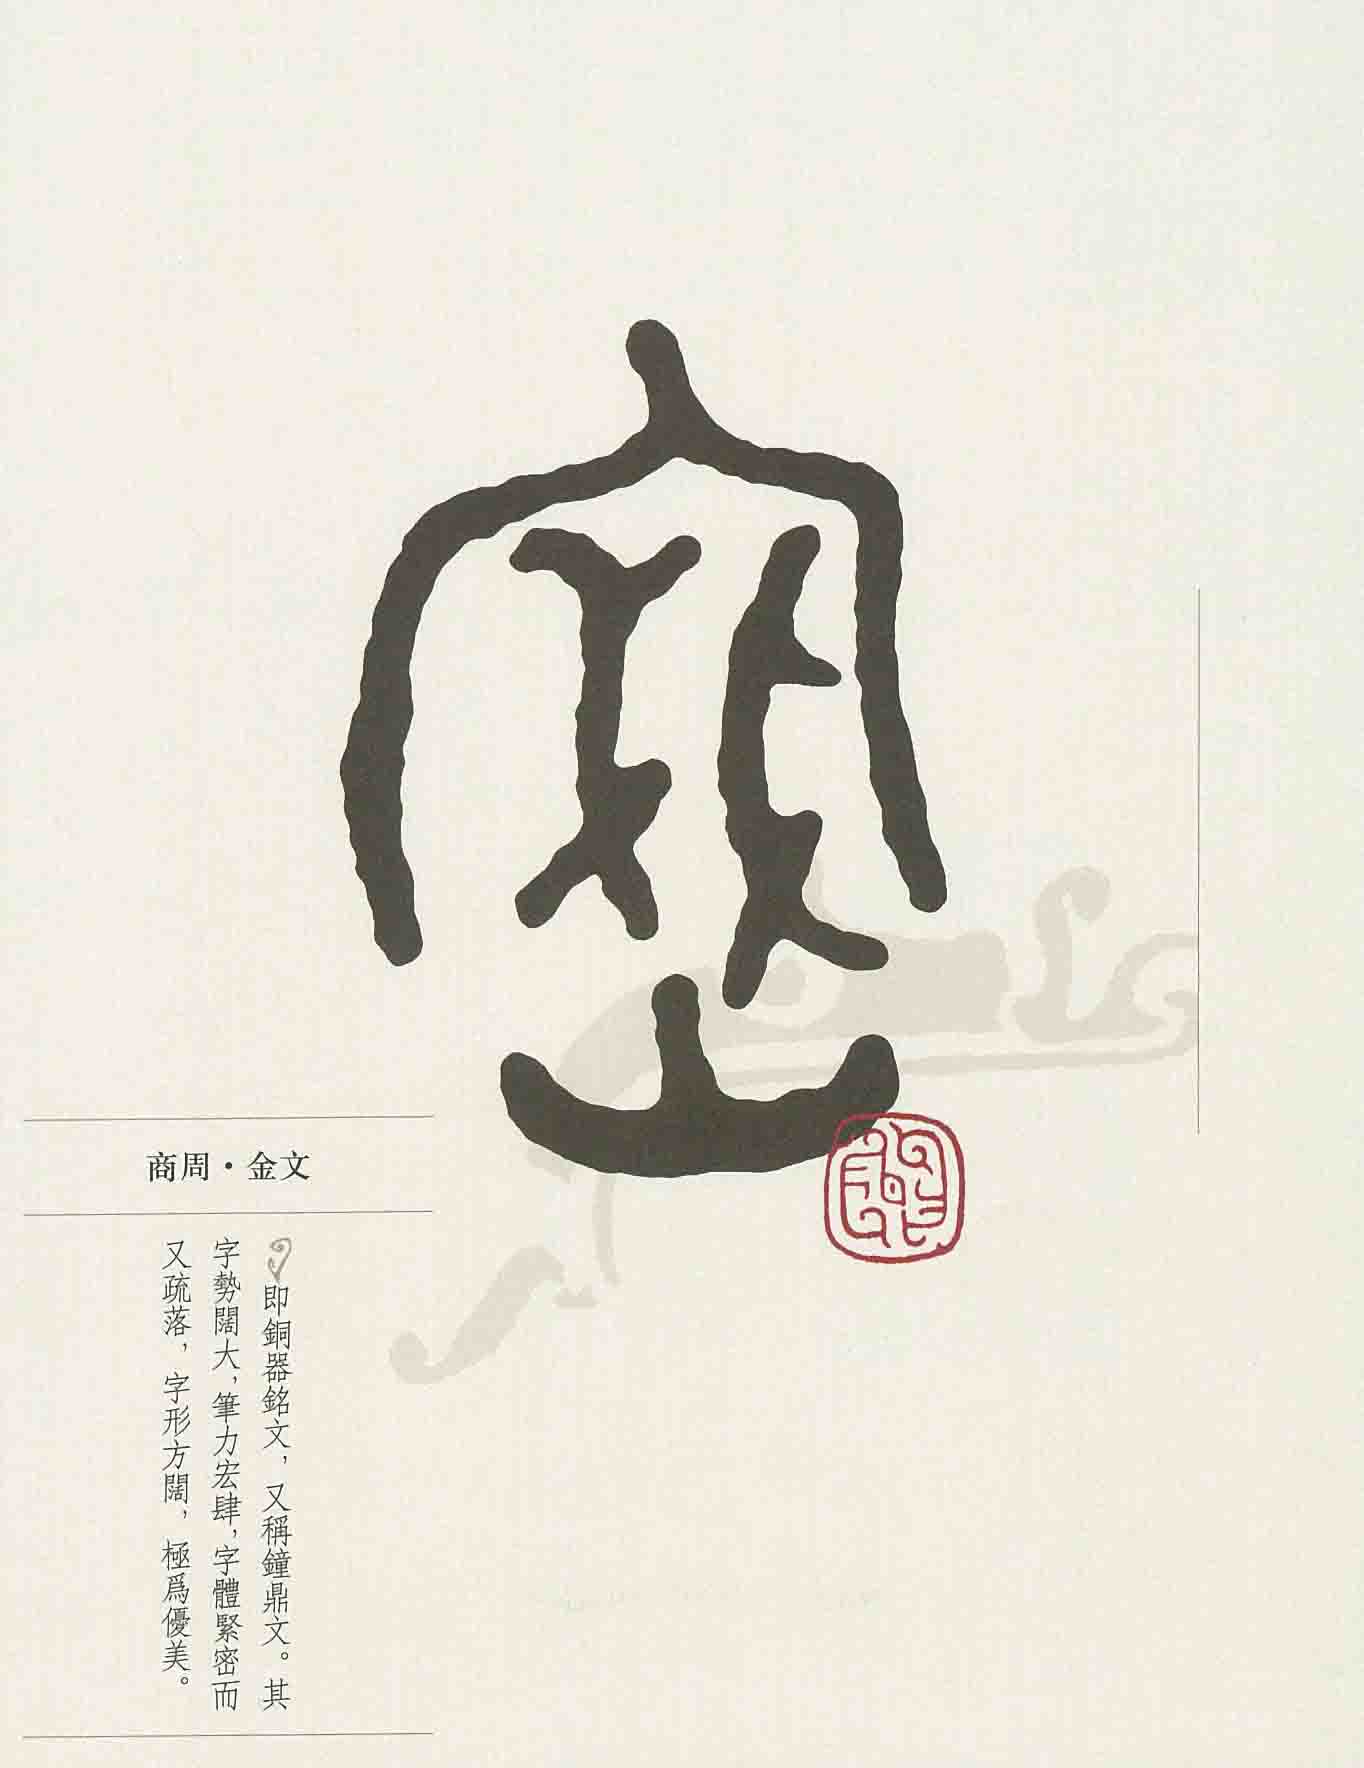 密
商周・金文
即銅器銘文，又稱鐘鼎文。其
字勢闊大，筆力宏肆，字體緊密而
又疏落，字形方闊，極爲優美。